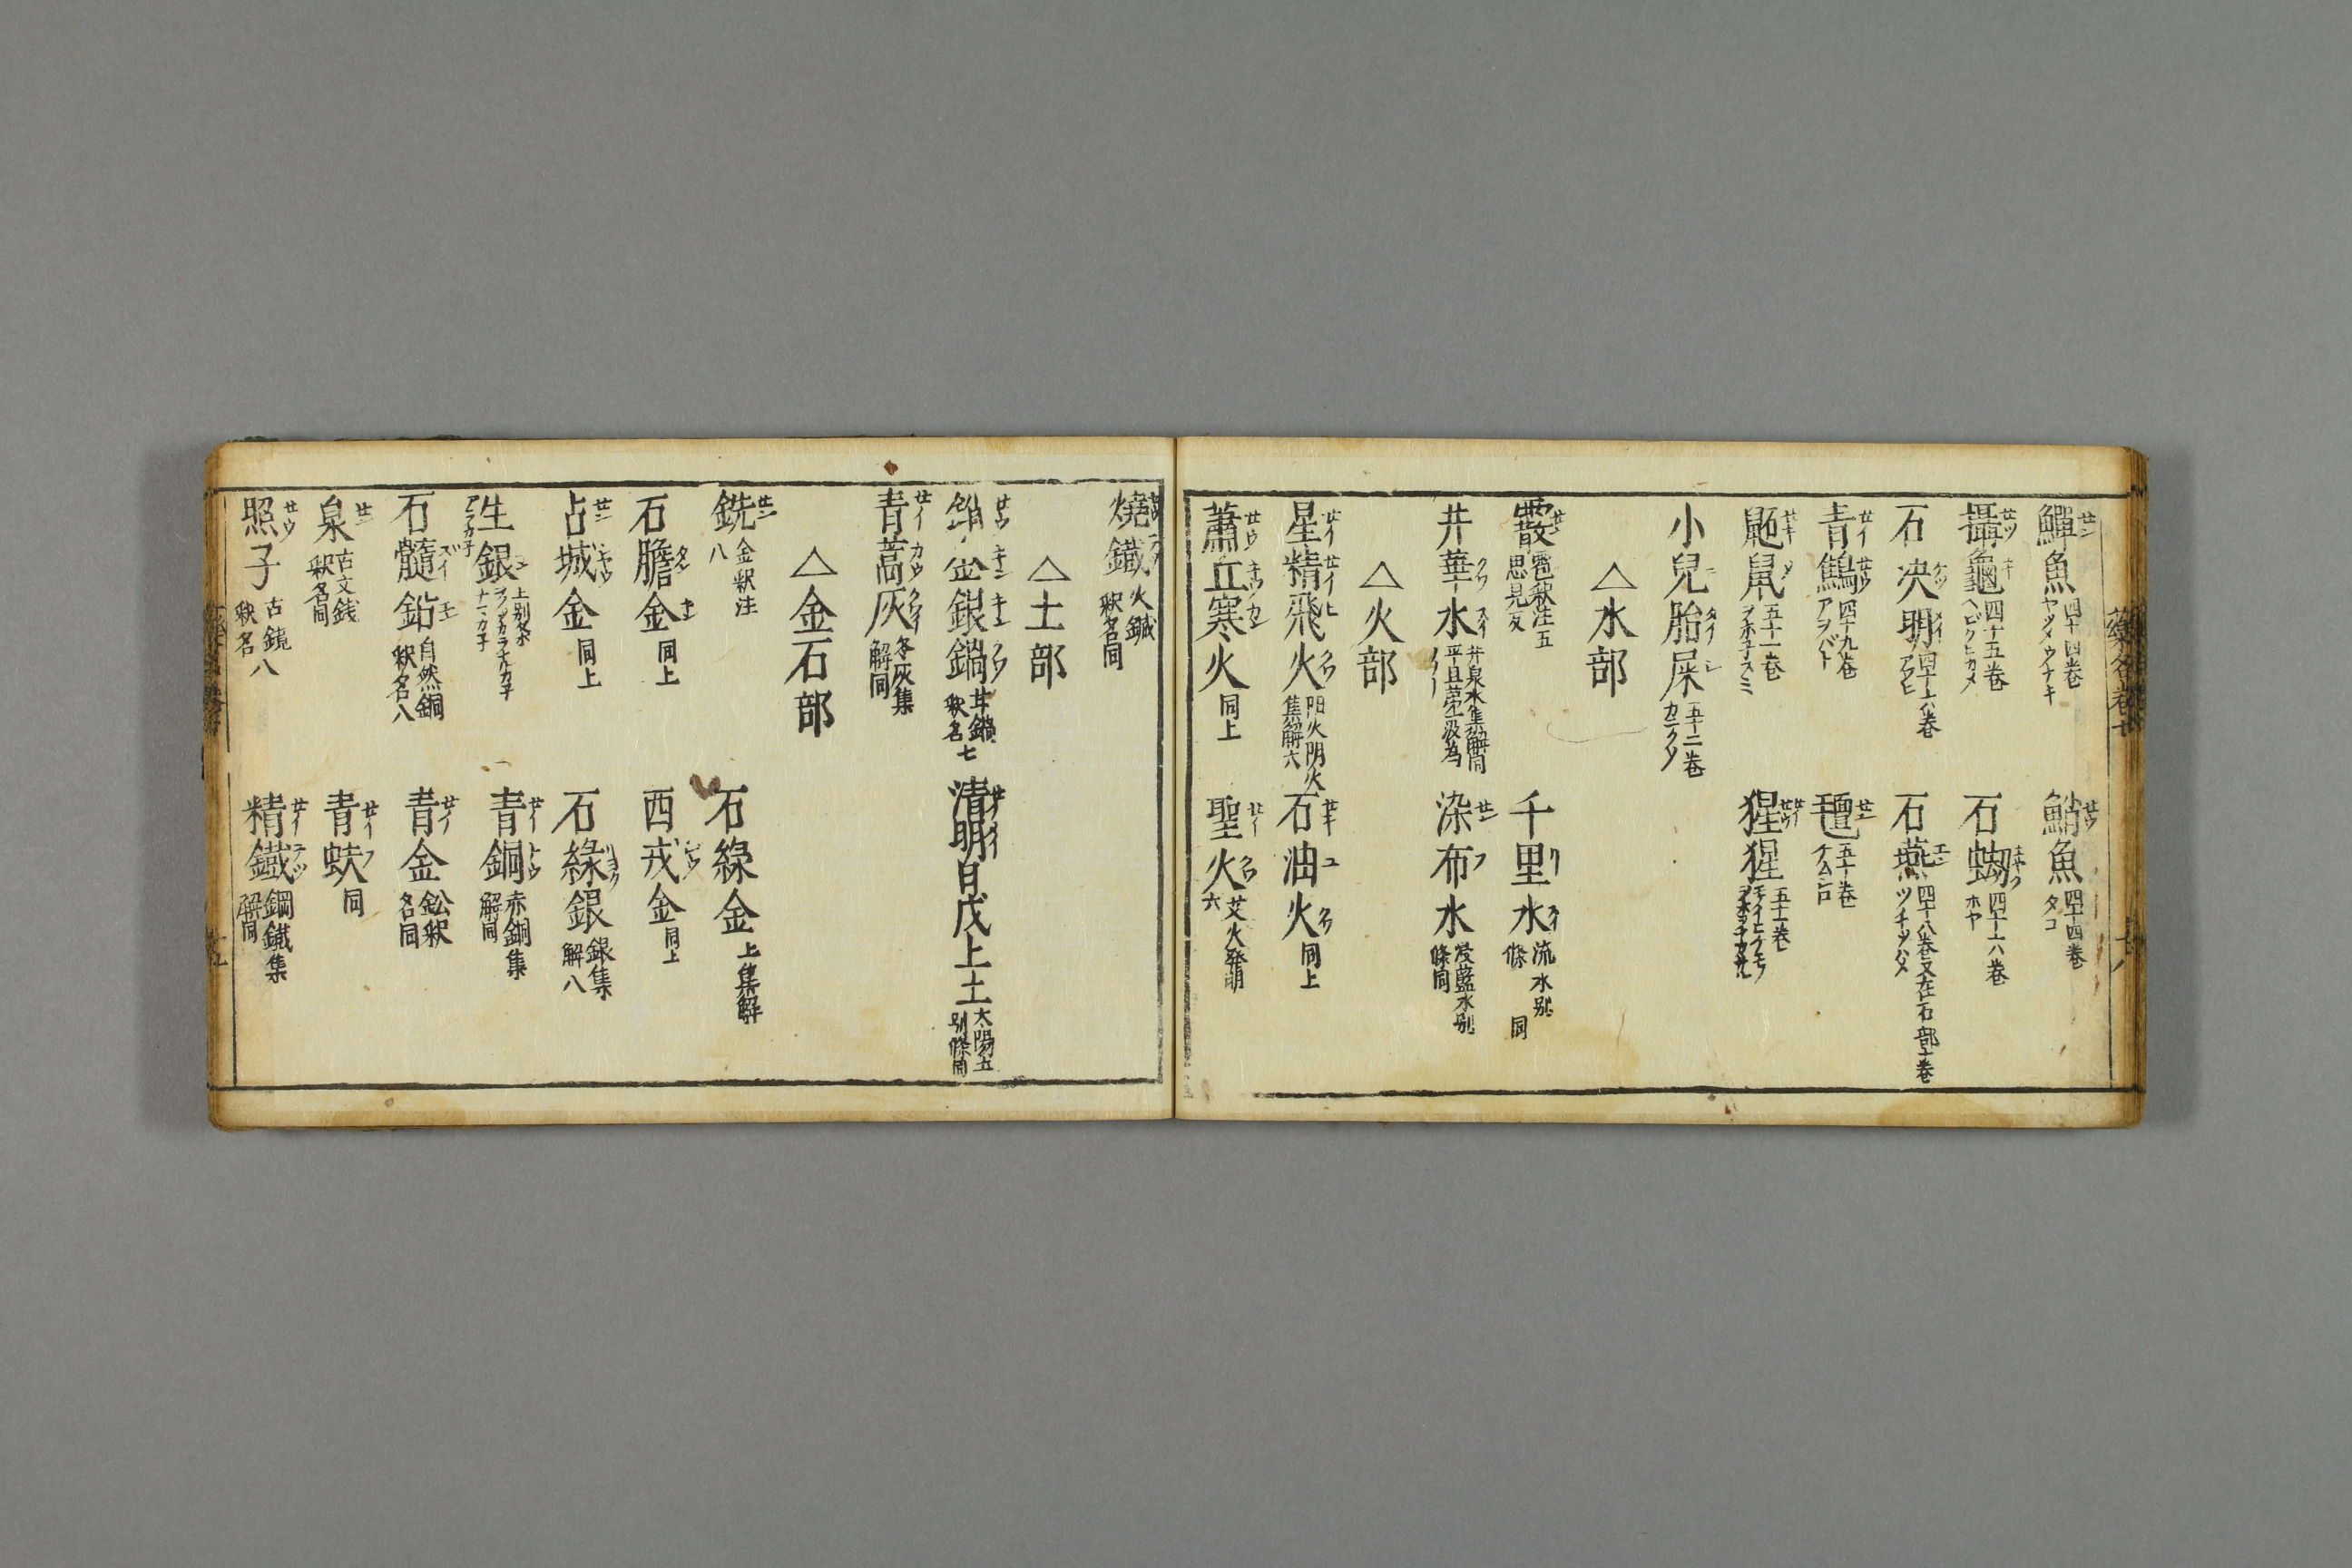 鱓魚 四十四巻 ヤツメウナキ
鮹魚 四十四巻 タコ
攝龜 四十五巻 ヘビクヒカメ
石蜐 四十六巻 ホヤ
石決明 四十六巻 アワヒ
石燕 四十八巻又在石部十巻 ツチツバメ
青鷦 四十九巻 アヲバト
氊 五十巻 ケムシロ
鼫鼠 五十一巻
猩猩 五十一巻
小兒胎屎 五十二巻 カニクソ
△水部
霰 雹釈注五 思見反
千里水 流水別條 同
井華水 井泉水集解同 平旦第一汲為
染布水 浸藍水別條同
△火部
星精飛火 陽火陰火集解六
石油火 同上
蕭丘寒火 同上
聖火 艾火発明六
燒鐵 火鍼釈名同
△土部
銷金銀鍋 甘鍋釈名七
清明日戊上土 太陽土別條同
青蒿灰 冬灰集解同
△金石部
銑 金釈注八
石綠金 上集解
石膽金 同上
西戎金 同上
占城金 同上
石綠銀 銀集解八
生銀 上別条
青銅 赤銅集解同
石髓鉛 自然銅釈名八
青金 鉛釈名同
泉 古文銭釈名同
青蚨 同
照子 古鏡釈名八
精鐵 鋼鐵集解同